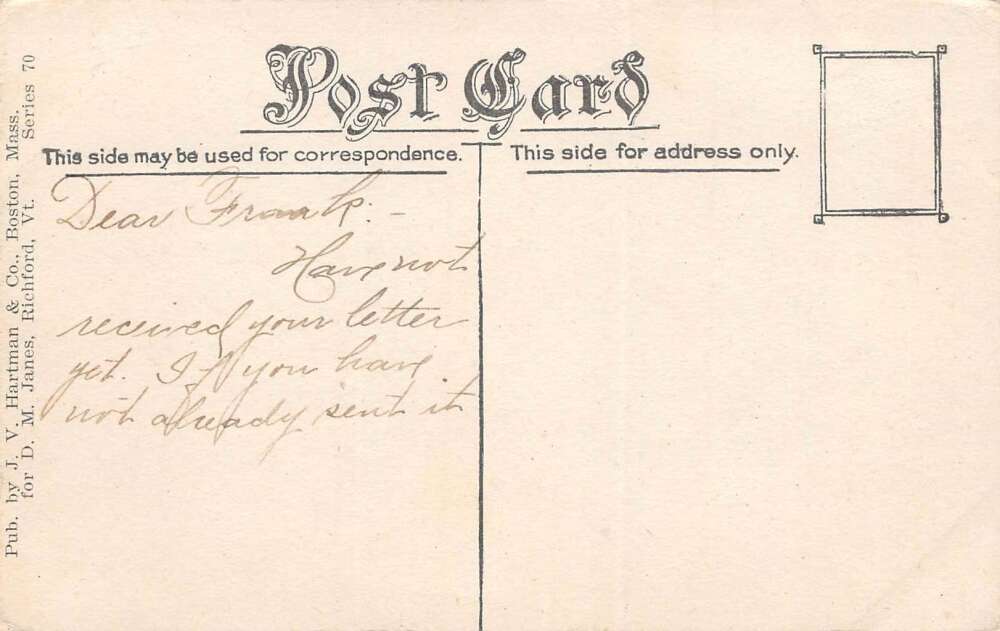 Post Card
This side may be used for correspondence.
This side for address only.
Dear Frank:-
Have not
received your letter
yet. If you have
not already sent it
Pub. by J. V. Hartman & Co., Boston, Mass.
for D. M. Janes, Richford, Vt. Series 70